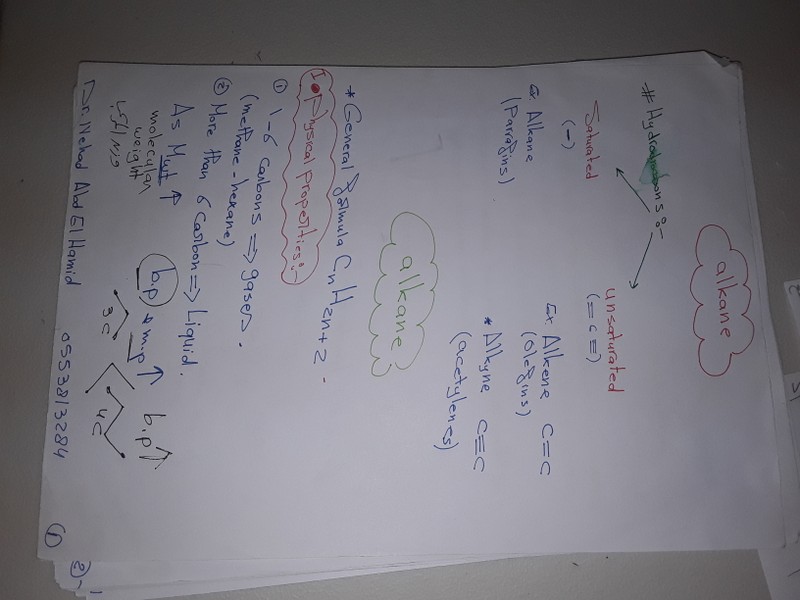 alkane
# Hydrocarbons:-
Saturated
(-)
Ex. Alkane
(Paraffins)
unsaturated
(= c ≡)
Ex Alkene C=C
(Olefins)
* Alkyne C≡C
(acetylenes)
alkane
* General formula CnH2n+2 .
I • Physical properties:-
① 1-6 carbons => gases.
(methane - hexane)
② More than 6 carbon => Liquid.
As Mwt ↑ b.p & m.p ↑ b.p ↑
molecular
weight
3C
4C
Dr. Nehad Abd El Hamid 0553813284
①
②